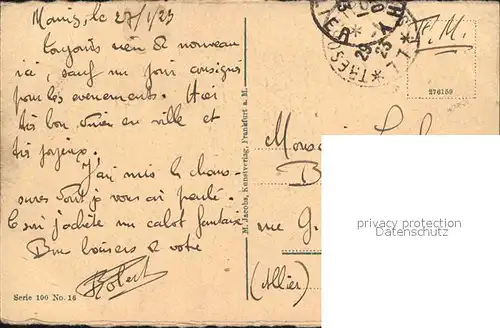 Mainz, le 27/1/23
Toujours rien de nouveau
ici, sauf un jour consignés
pour les evenements. Hier
très bon dîner en ville et
très joyeux.
J'ai mis le chaus-
sures dont je vous ai parlé.
Ce soir j'achète un calot fantaisie
Bons baisers à vous
Robert
Serie 100 No. 16
M. Jacobs, Kunstverlag, Frankfurt a. M.
THESOR
F.M.
276159
Monsieur
rue G.
(Allier)
privacy protection
watermark